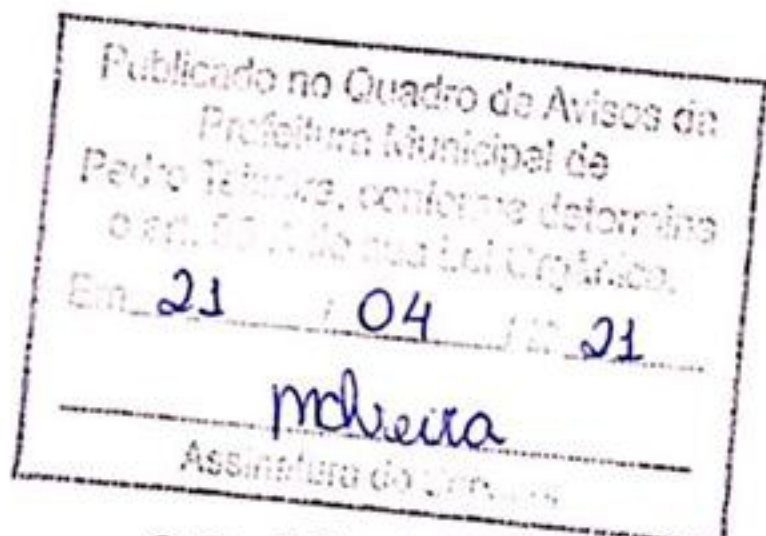 Publicado no Quadro de Avisos da
Prefeitura Municipal de
Pedro Teixeira, conforme determina
o art. da sua Lei Orgânica.
Em 21 / 04 / 21
Assinatura do